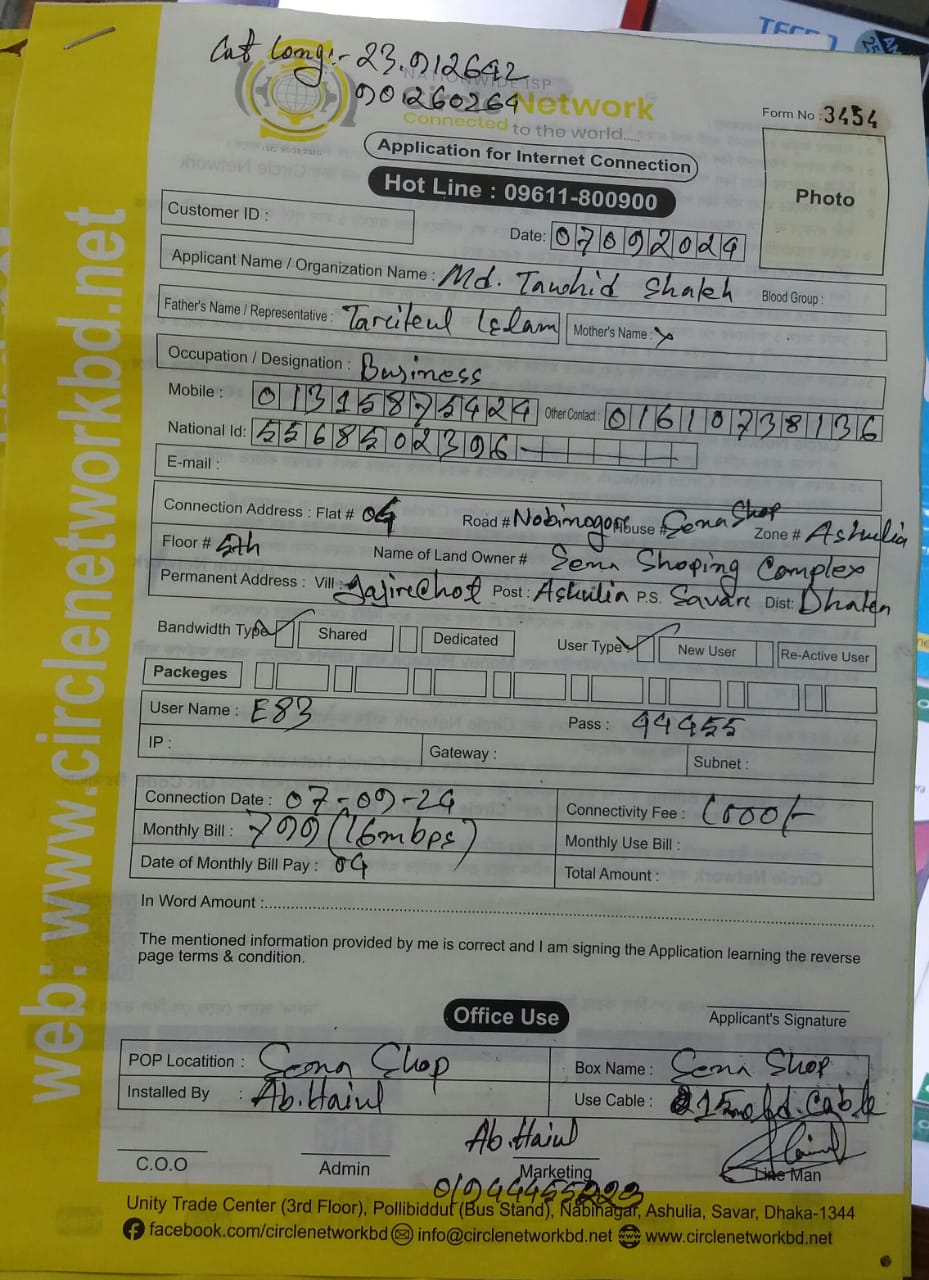 Cat Long:- 23.912692
901260264
NATIONWIDE ISP
Circle Network
Connected to the world.....
ISO 9001:2015
Form No : 3454
Photo
Application for Internet Connection
Hot Line : 09611-800900
Customer ID :
Date: 07092024
Applicant Name / Organization Name : Md. Tawhid Shakh Blood Group :
Father's Name / Representative : Tarcikul Islam Mother's Name :
Occupation / Designation : Business
Mobile : 01315875424 Other Contact : 01610738136
National Id: 5568502396
E-mail :
Connection Address : Flat # 04 Road # Nobinogore House # Sena Shop Zone # Ashulia
Floor # 5th Name of Land Owner # Sena Shoping Complex
Permanent Address : Vill : Gajirchot Post : Ashulia P.S. Savare Dist: Dhaka
Bandwidth Type Shared Dedicated User Type New User Re-Active User
Packeges
User Name : E83 Pass : 44455
IP : Gateway : Subnet :
Connection Date : 07-09-24 Connectivity Fee : 1000/-
Monthly Bill : 799 (16mbps) Monthly Use Bill :
Date of Monthly Bill Pay : 04 Total Amount :
In Word Amount :
The mentioned information provided by me is correct and I am signing the Application learning the reverse
page terms & condition.
Office Use
Applicant's Signature
POP Locatition : Sena Shop Box Name : Sena Shop
Installed By : Ab. Haiul Use Cable :
Ab. Haiul
C.O.O Admin Marketing Line Man
01944455223
Unity Trade Center (3rd Floor), Pollibiddut (Bus Stand), Nabinagar, Ashulia, Savar, Dhaka-1344
facebook.com/circlenetworkbd info@circlenetworkbd.net www.circlenetworkbd.net
web: www.circlenetworkbd.net